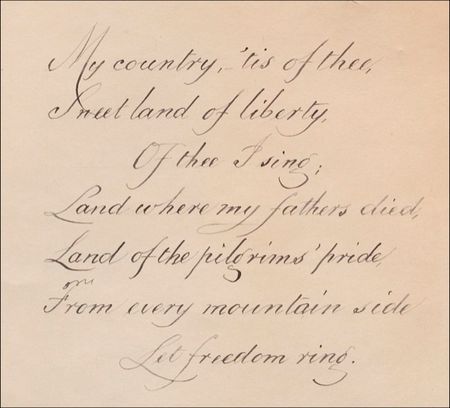 My country, 'tis of thee,
Sweet land of liberty,
Of thee I sing;
Land where my fathers died,
Land of the pilgrims' pride,
From every mountain side
Let freedom ring.